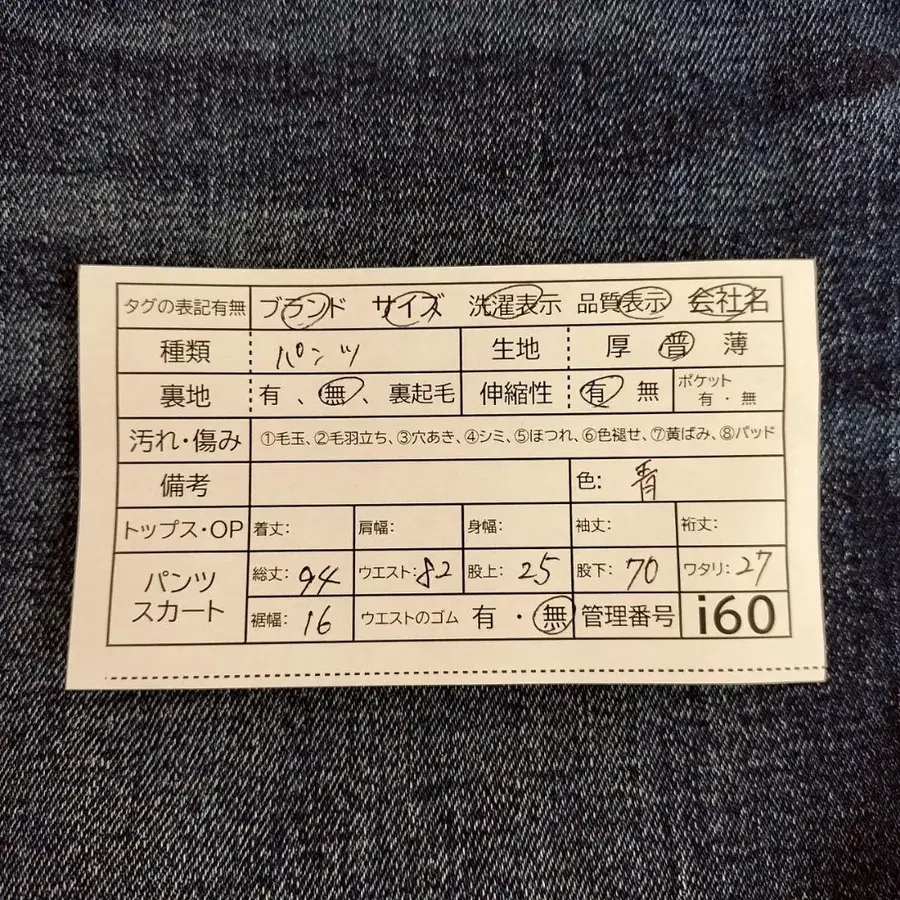 タグの表記有無 ブランド サイズ 洗濯表示 品質表示 会社名
種類 パンツ 生地 厚 普 薄
裏地 有 、 無 、 裏起毛 伸縮性 有 無 ポケット 有 ・ 無
汚れ・傷み ①毛玉、②毛羽立ち、③穴あき、④シミ、⑤ほつれ、⑥色褪せ、⑦黄ばみ、⑧パッド
備考 色: 青
トップス・OP 着丈: 肩幅: 身幅: 袖丈: 裄丈:
パンツ スカート 総丈: 94 ウエスト: 82 股上: 25 股下: 70 ワタリ: 27
裾幅: 16 ウエストのゴム 有 ・ 無 管理番号 i60